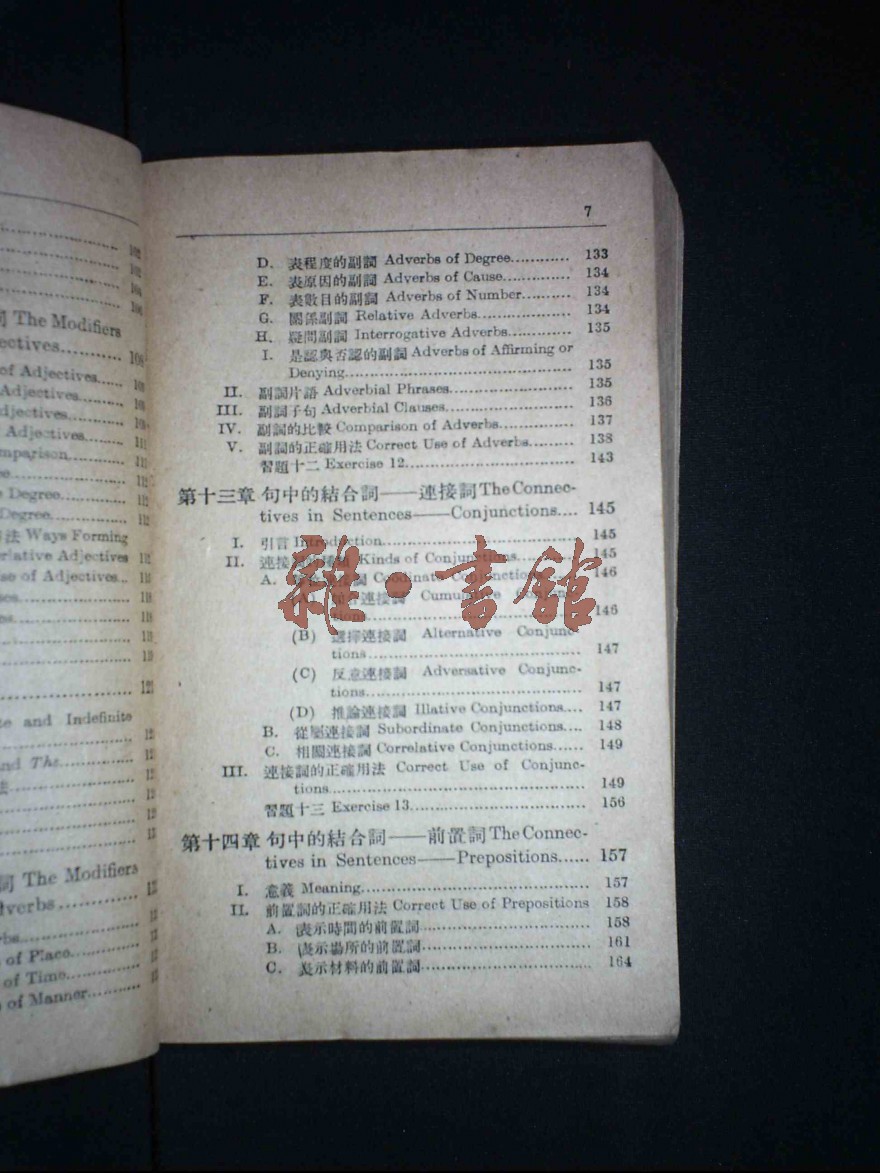 102
103
104
106
詞 The Modifiers
ectives.......... 108
of Adjectives..... 109
Adjectives........ 109
djectives........ 109
Adjectives....... 111
mparison........ 111
112
e Degree........ 112
Degree.......... 112
法 Ways Forming
erlative Adjectives 112
se of Adjectives...
118
118
119
119
121
te and Indefinite
nd The.........
詞 The Modifiers
dverbs..........
rbs.............
of Place........
of Time........
of Manner.......
7
D. 表程度的副詞 Adverbs of Degree............ 133
E. 表原因的副詞 Adverbs of Cause.............. 134
F. 表數目的副詞 Adverbs of Number.......... 134
G. 關係副詞 Relative Adverbs................... 134
H. 疑問副詞 Interrogative Adverbs............. 135
I. 是認與否認的副詞 Adverbs of Affirming or
Denying............................................. 135
II. 副詞片語 Adverbial Phrases......................... 135
III. 副詞子句 Adverbial Clauses.......................... 136
IV. 副詞的比較 Comparison of Adverbs............... 137
V. 副詞的正確用法 Correct Use of Adverbs......... 138
習題十二 Exercise 12.................................. 143
第十三章 句中的結合詞——連接詞 The Connec-
tives in Sentences——Conjunctions.... 145
I. 引言 Introduction........................................ 145
II. 連接詞的種類 Kinds of Conjunctions............ 145
A. 連接詞 Coodinate Conjunctions......... 146
(A) 連接詞 Cumulative Conjunc-
tions........................................ 146
(B) 選擇連接詞 Alternative Conjunc-
tions........................................ 147
(C) 反意連接詞 Adversative Conjunc-
tions........................................ 147
(D) 推論連接詞 Illative Conjunctions.... 147
B. 從屬連接詞 Subordinate Conjunctions.... 148
C. 相關連接詞 Correlative Conjunctions...... 149
III. 連接詞的正確用法 Correct Use of Conjunc-
tions................................................... 149
習題十三 Exercise 13.................................. 156
第十四章 句中的結合詞——前置詞 The Connec-
tives in Sentences——Prepositions...... 157
I. 意義 Meaning............................................ 157
II. 前置詞的正確用法 Correct Use of Prepositions 158
A. 表示時間的前置詞............................... 158
B. 表示場所的前置詞............................... 161
C. 表示材料的前置詞............................... 164
雜·書館